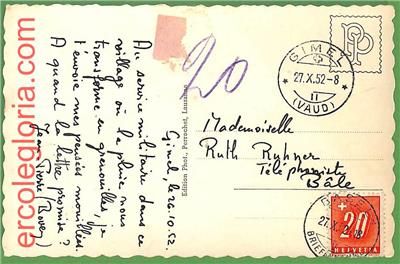 ercolegloria.com
Gimel, le 26.10.52.
Au service militaire dans ce
village où la pluie nous
transforme en grenouilles, je
t'envoie mes pensées mouillées
A quand la lettre promise ?
Jean-Pierre (Bovey)
Edition Phot. Perrochet, Lausanne
20
GIMEL
27.X.52-8
II
(VAUD)
PP
Mademoiselle
Ruth Ryhner
Téléphoniste
Bâle
27.X.52
BRIEF
+
20
HELVETIA